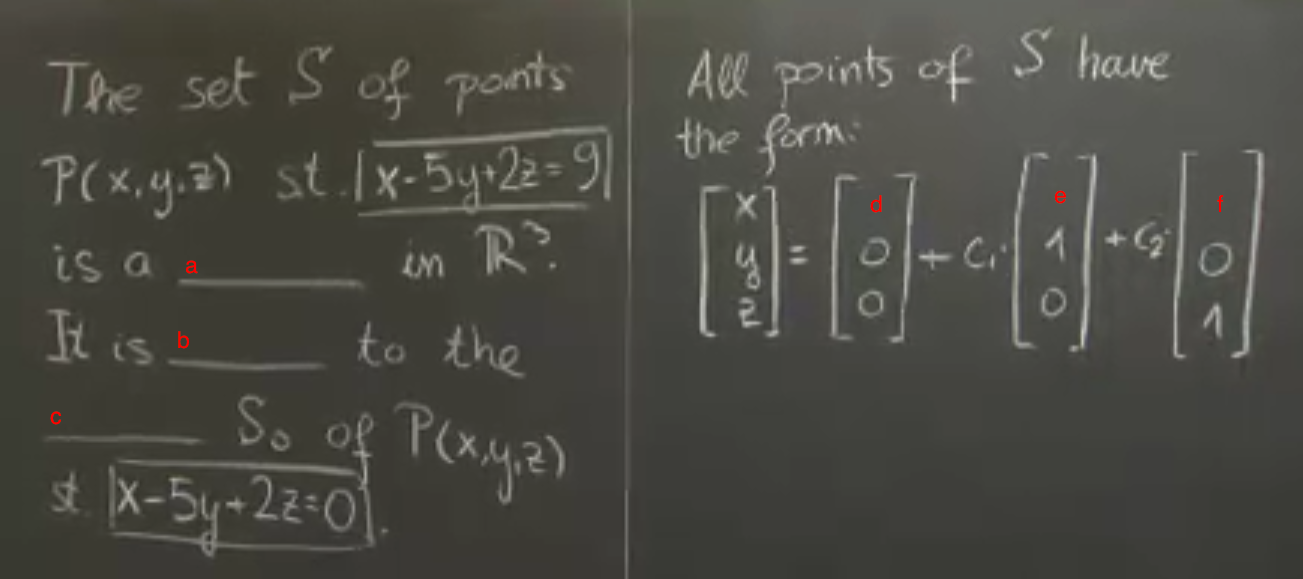 The set S of points
P(x,y,z) st. x-5y+2z=9
is a a in ℝ³.
It is b to the
c S₀ of P(x,y,z)
st. x-5y+2z=0.
All points of S have
the form:
[x y z] = [d 0 0] + c₁· [e 1 0] + c₂· [f 0 1]